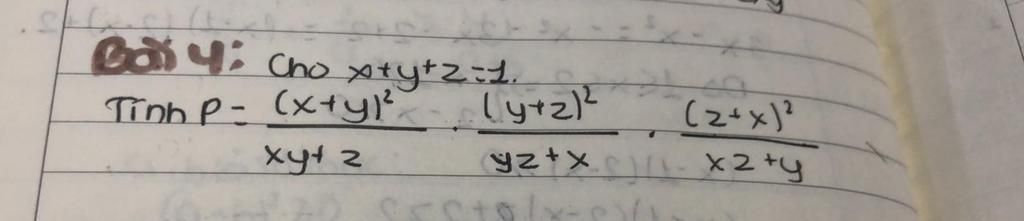 Bài 4: Cho x+y+z=1.
Tính P = (x+y)²/(xy+z) . (y+z)²/(yz+x) . (z+x)²/(xz+y)